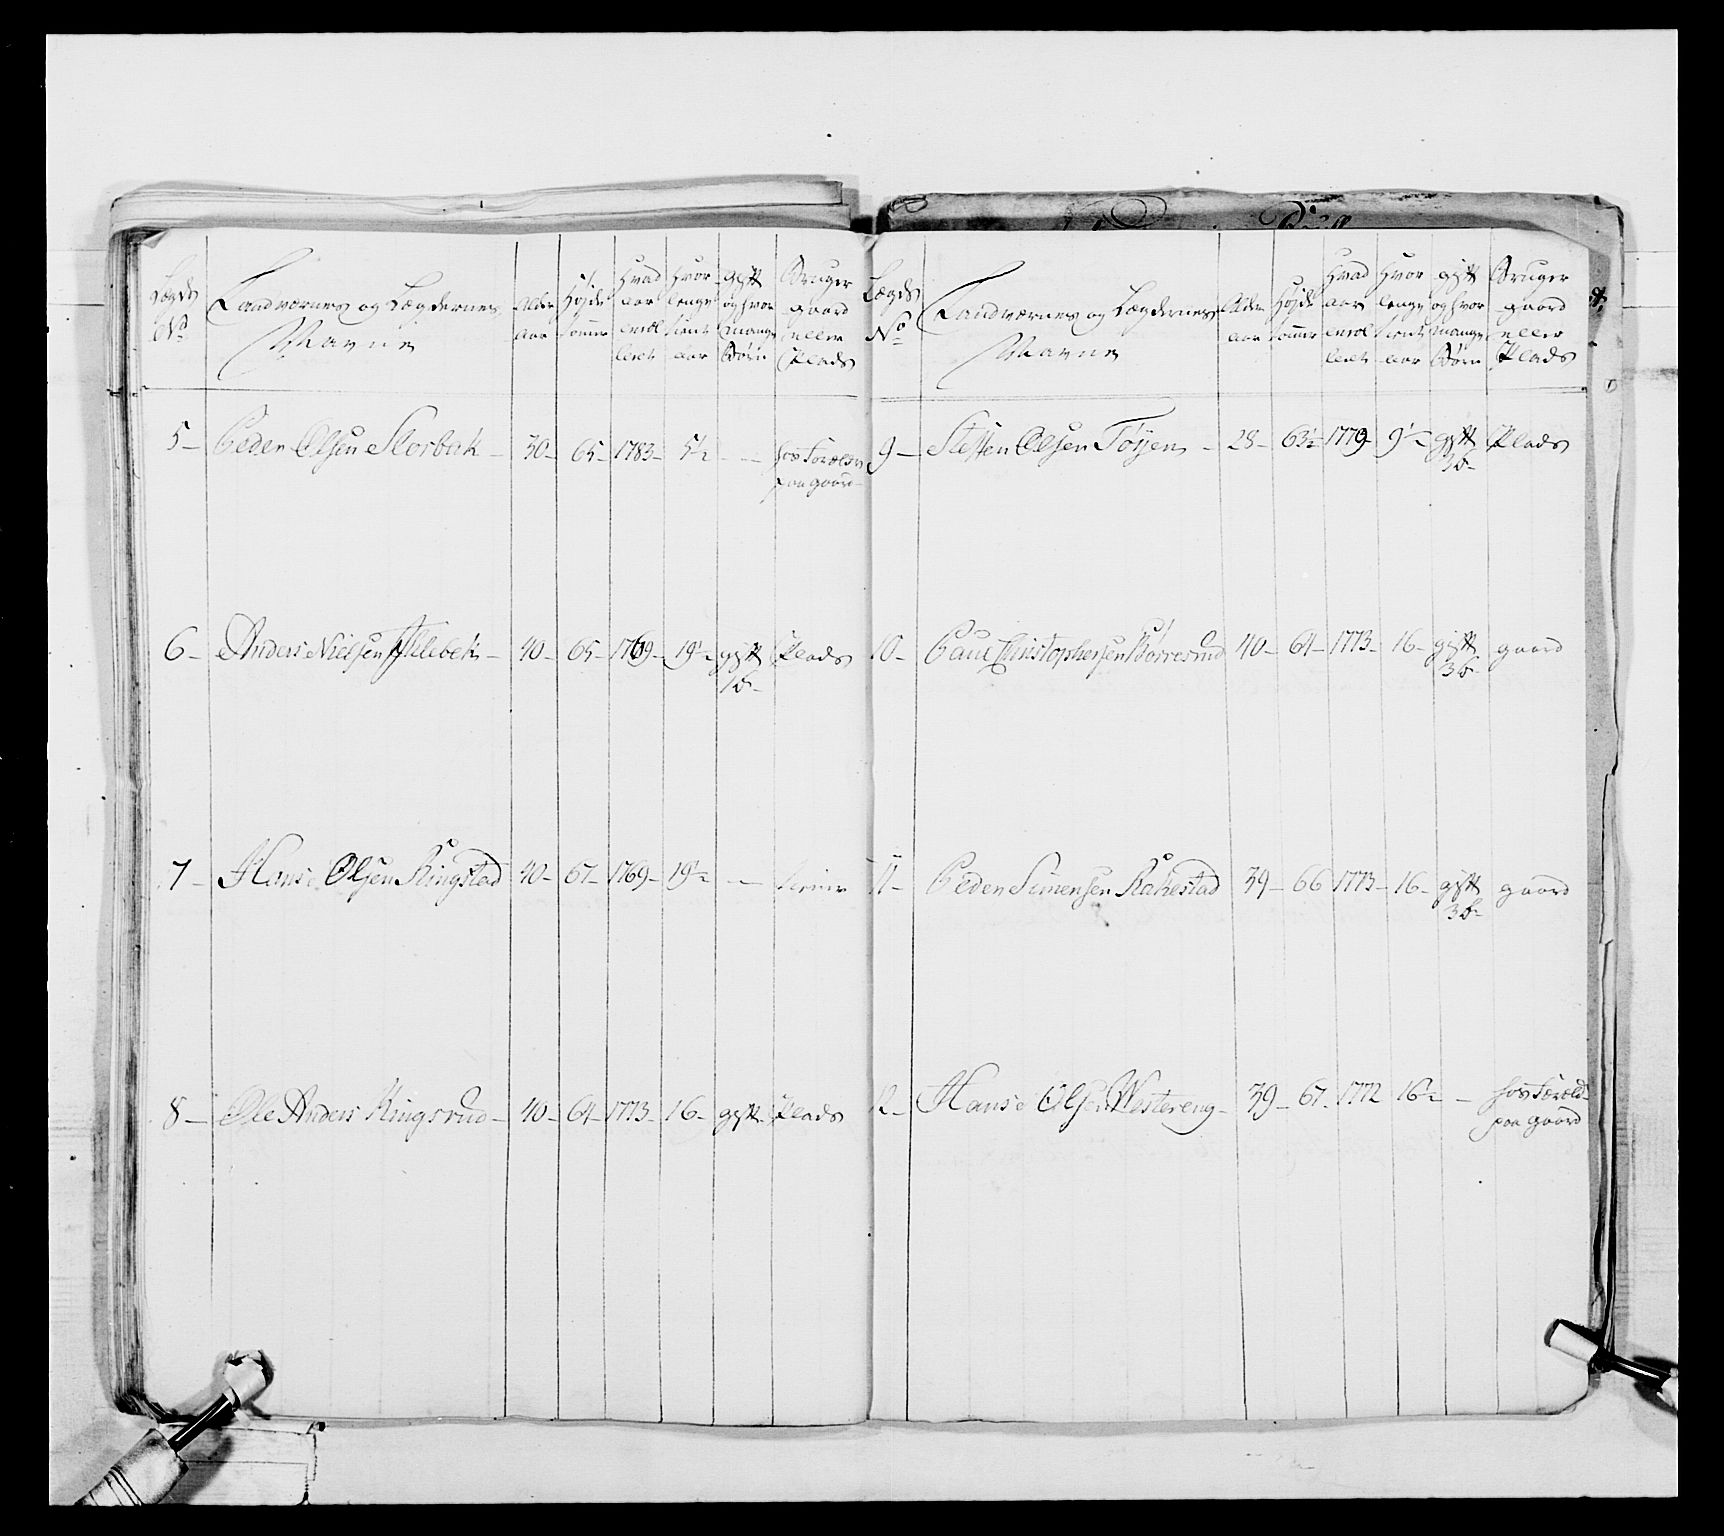 Lægds No
Landværnes og Lægdernes Navne
Alder aar
Højde tommer
Hvad aar enrolleret
Hvor lenge tient aar
gift og hvor mange Børn
Bruger gaard eller Plads
5 – Peder Olsen Slorbak – 30 – 65 – 1783 – 5½ – hos Foræld
paa gaard –
6 – Anders Nielsen – 40 – 65 – 1769 – 19½ – gift Plads
1 b –
7 – Hans Olsen Ringstad 40 – 67 – 1769 – 19½ –
8 – Ole Anders Kingsrud – 40 – 64 – 1773 – 16 – gift – Plads
Lægds No
Landværnes og Lægdernes Navne
Alder aar
Højde tommer
Hvad aar enrolleret
Hvor lenge tient aar
gift og hvor mange Børn
Bruger gaard eller Plads
9 – Steffen Olsen Töyen – 28 – 63½ – 1779 – 9½ – gift Plads
3 b –
10 – Paul Christophersen Börresrud 40 – 64 – 1773 – 16 – gift gaard
3 b –
11 – Peder Simensen Rakestad 39 – 66 1773 – 16 – gift gaard
3 b –
12 – Hans Olsen Westereng – 39 – 67 – 1772 16½ – hos Foræld
paa gaard